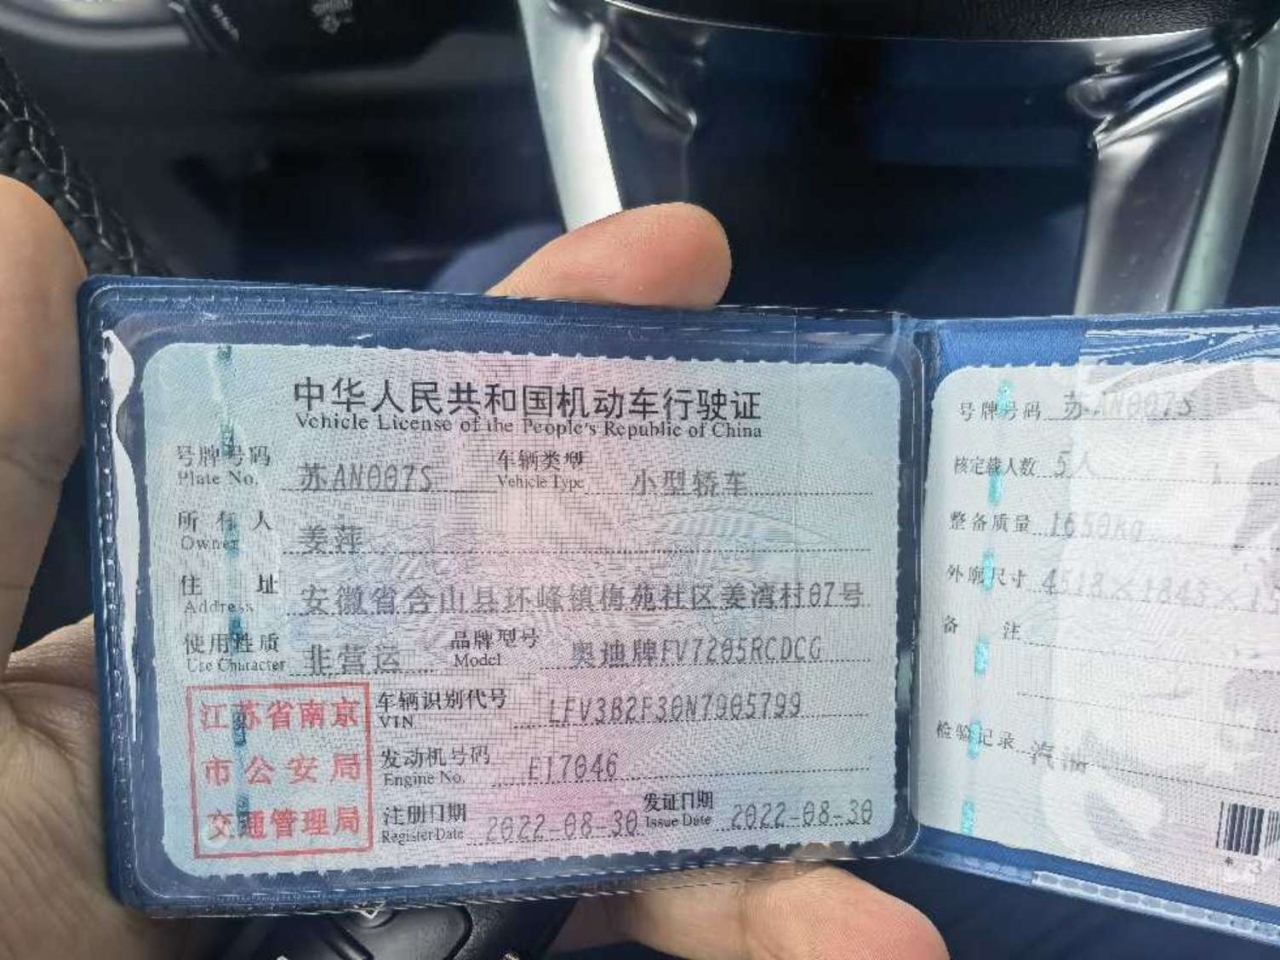 中华人民共和国机动车行驶证
Vehicle License of the People's Republic of China
号牌号码 苏AN007S 车辆类型 小型轿车
Plate No. Vehicle Type
所有人 姜萍
Owner
住址 安徽省含山县环峰镇梅苑社区姜湾村07号
Address
使用性质 非营运 品牌型号 奥迪牌FV7205RCDCG
Use Character Model
江苏省南京
市公安局
交通管理局
车辆识别代号 LFV3B2F30N7905799
VIN
发动机号码 E17046
Engine No.
注册日期 2022-08-30 发证日期 2022-08-30
Register Date Issue Date
号牌号码 苏AN007S
核定载人数 5人
整备质量 1650kg
外廓尺寸 4518×1843×15
备注
检验记录 汽油